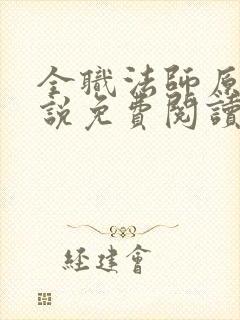 全職法師原
說免費閱讀
經建會